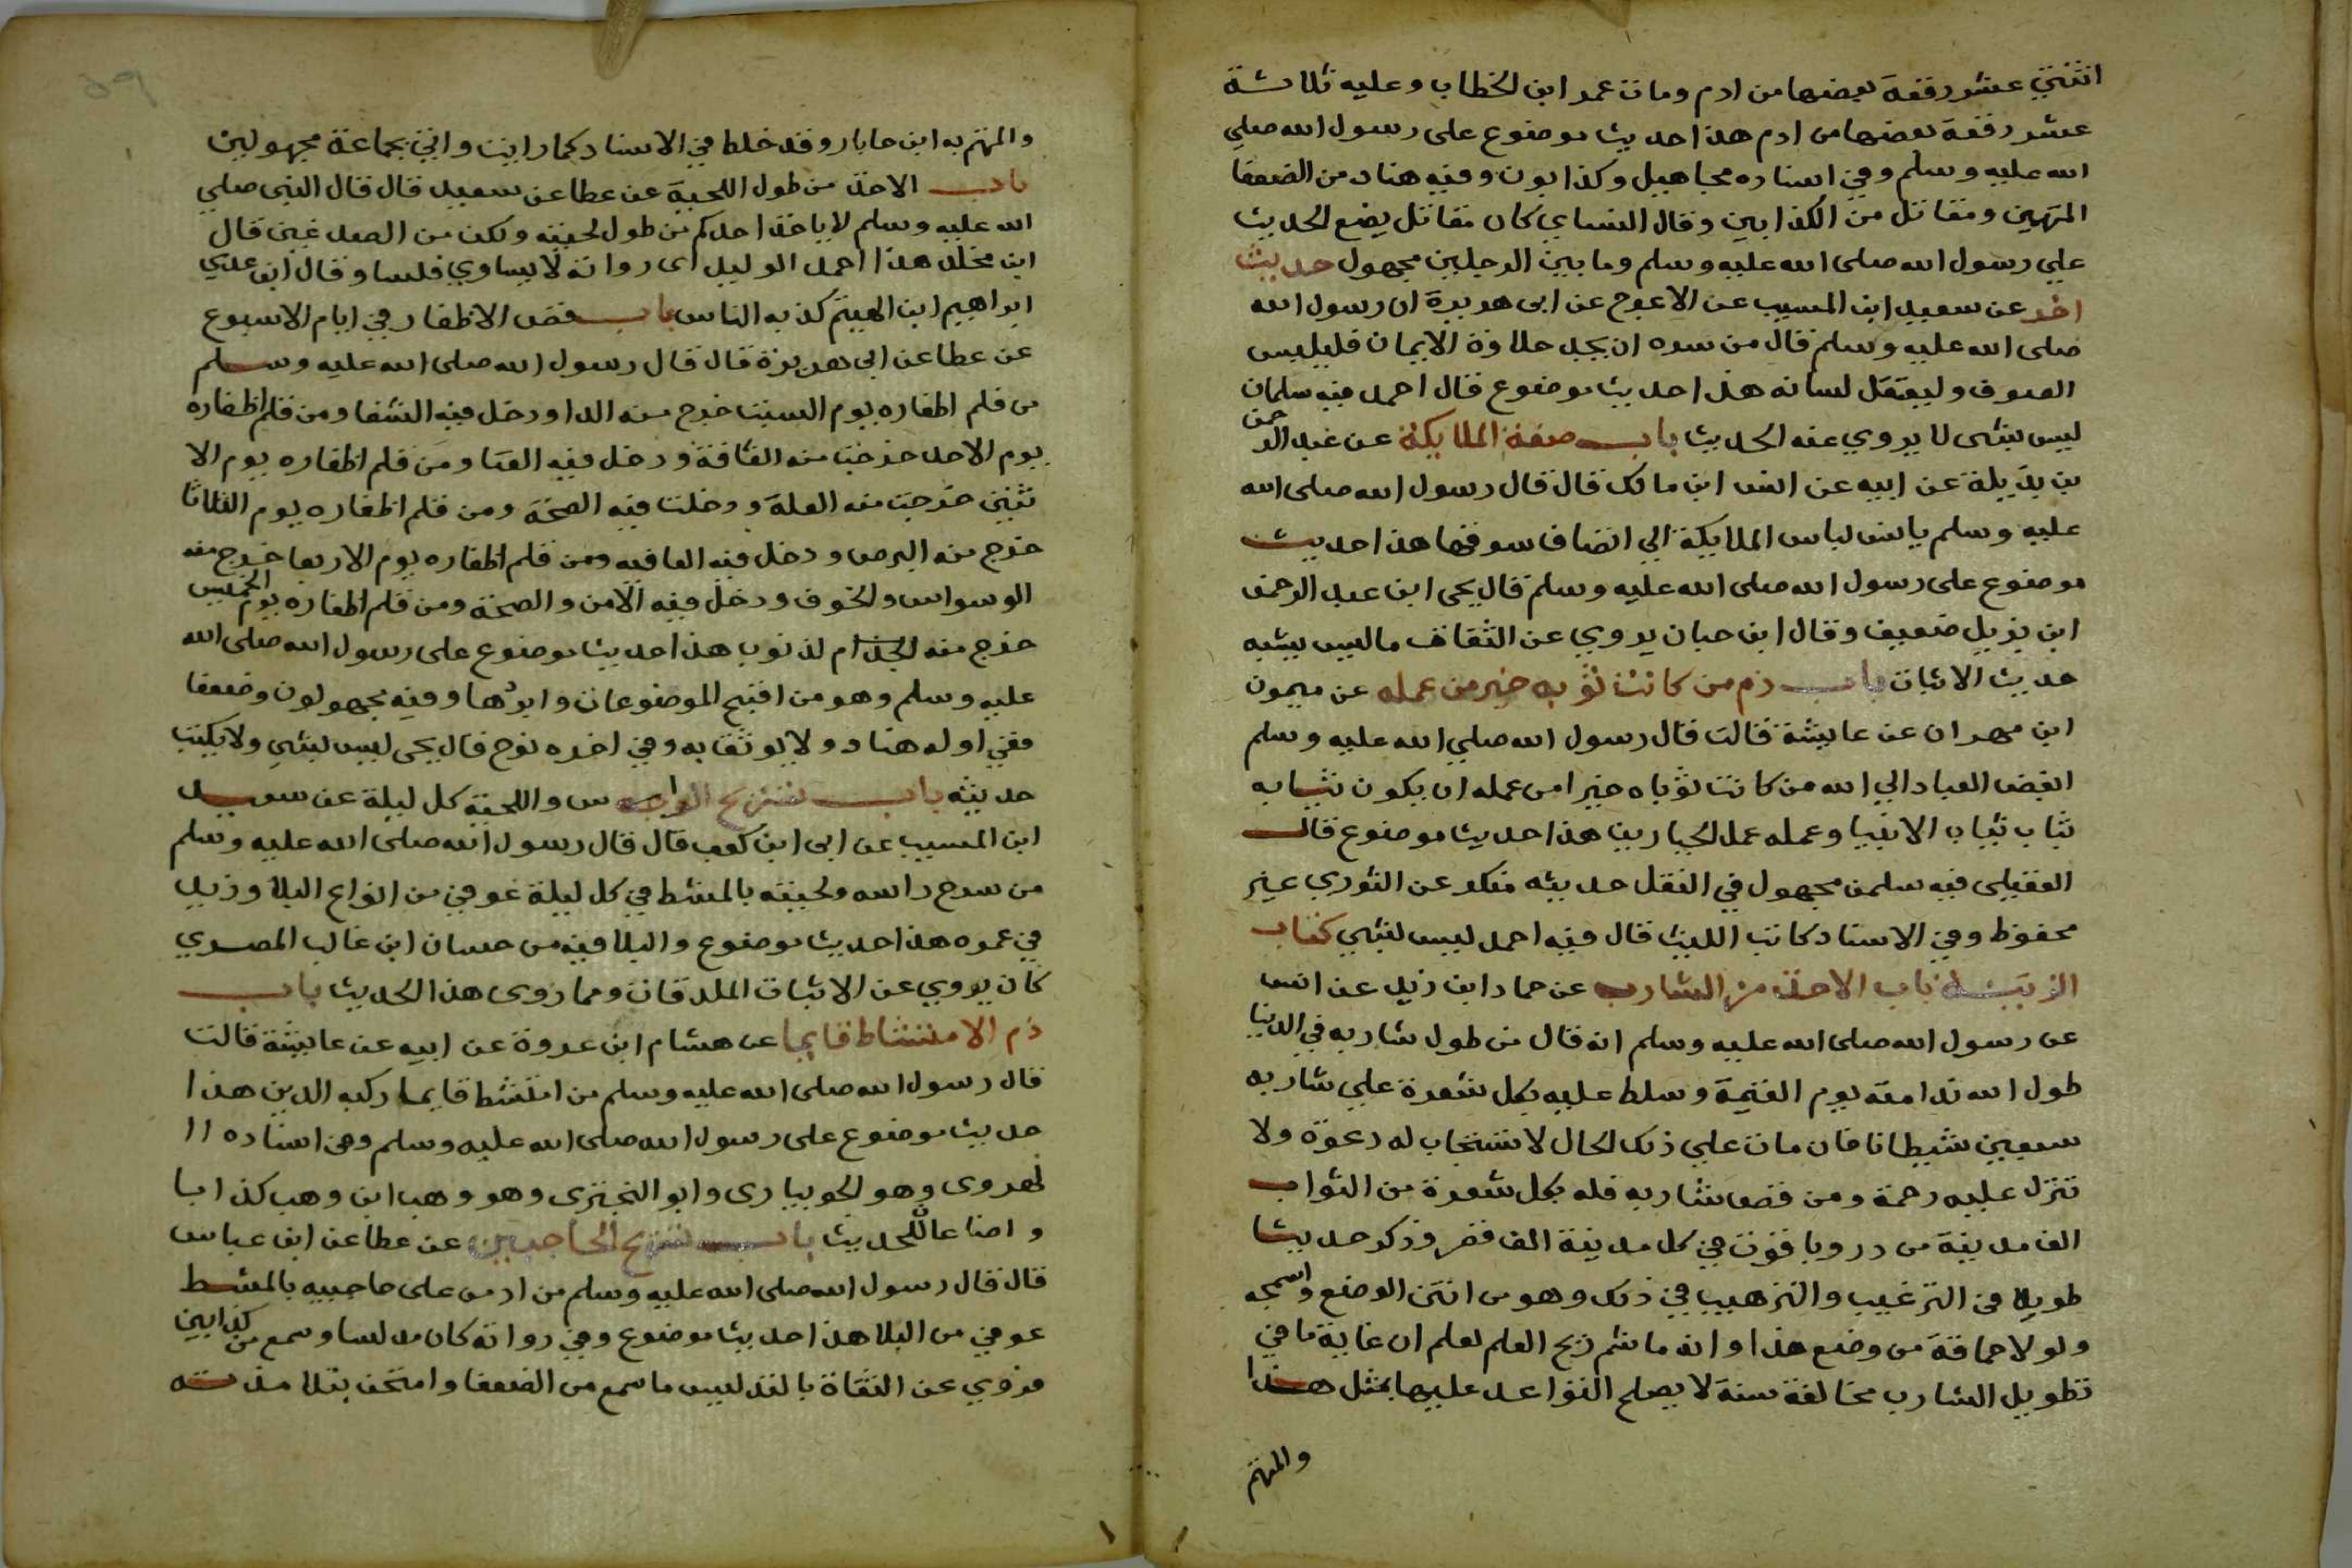 اثنتي عشر رقعة بعضها من ادم ومات عمر ابن الخطاب وعليه ثلاثة
عشر رقعة بعضها من ادم هذا حديث موضوع على رسول الله صلي
الله عليه وسلم وفي اسناده مجاهيل وكذابون وفيه هناد من الضعفا
المتهمين ومقاتل من الكذابين وقال النساي كان مقاتل يضع الحديث
علي رسول الله صلى الله عليه وسلم وما بين الرجلين مجهول حديث
اخر عن سعيد ابن المسيب عن الاعرج عن ابى هريرة ان رسول الله
صلى الله عليه وسلم قال من سره ان يجد حلاوة الايمان فليلبس
الصوف وليعتقل لسانه هذا حديث موضوع قال احمد فيه سلمان
ليس بشى لا يروي عنه الحديث باب صفة الملايكة عن عبد الرحمن
بن بديلة عن ابيه عن انس ابن مالك قال قال رسول الله صلى الله
عليه وسلم يانس لباس الملايكة الي انصاف سوقها هذا حديث
موضوع على رسول الله صلى الله عليه وسلم قال يحى ابن عبد الرحمن
ابن بزيل ضعيف وقال ابن حبان يروي عن الثقات ما ليس يشبه
حديث الاثبات باب ذم من كانت ثوبه خير من عمله عن ميمون
ابن مهران عن عايشة قالت قال رسول الله صلي الله عليه وسلم
ابغض العباد الي الله من كانت ثوباه خيرا من عمله ان يكون ثيابه
ثياب ثياب الانبيا وعمله عمل الجبارين هذا حديث موضوع قال
العقيلى فيه سلمن مجهول في النقل حديثه منكر عن الثوري غير
محفوظ وفي الاسناد كاتب الليث قال فيه احمد ليس بشي كتاب
الزينة باب الاخذ من الشارب عن حماد ابن زيد عن انس
عن رسول الله صلى الله عليه وسلم انه قال من طول شاربه في الدنيا
طول الله ندامته يوم القيمة وسلط عليه بكل شعرة علي شاربه
سبعين شيطانا فان مات علي ذلك الحال لا تستجاب له دعوة ولا
تنزل عليه رحمة ومن قص شاربه فله بكل شعرة من الثواب
الف مدينة من در وياقوت في كل مدينة الف قصر وذكر حديثا
طويلا في الترغيب والترهيب في ذلك وهو من انتن الوضع واسمجه
ولولا حماقة من وضع هذا وانه ما شم ريح العلم لعلم ان غاية ما في
تطويل الشارب مخالفة سنة لا يصلح التواعد عليها بمثل هذا
والمتهم
والمتهم به ابن حابار وقد خلط في الاسناد كما رايت واتي بجماعة مجهولين
باب الاخذ من طول اللحية عن عطا عن سعيد قال قال النبى صلي
الله عليه وسلم لا ياخذ احدكم من طول لحيته ولكن من الصدغين قال
ابن مخلد هذا احمد الوليد اى رواته لا يساوي فلسا وقال ابن عدي
ابراهيم ابن الهيثم كذبه الناس باب قص الاظفار في ايام الاسبوع
عن عطا عن ابي هريرة قال قال رسول الله صلى الله عليه وسلم
من قلم اظفاره يوم السبت خرج منه الدا ودخل فيه الشفا ومن قلم اظفاره
يوم الاحد خرجت منه الفاقة ودخل فيه الغنا ومن قلم اظفاره يوم الا
ثنين خرجت منه العلة ودخلت فيه الصحة ومن قلم اظفاره يوم الثلاثا
خرج منه البرص ودخل فيه العافيه ومن قلم اظفاره يوم الاربعا خرج منه
الوسواس والخوف ودخل فيه الامن والصحة ومن قلم اظفاره يوم الخميس
خرج منه الجذام لذنوب هذا حديث موضوع على رسول الله صلى الله
عليه وسلم وهو من اقبح الموضوعات وابردها وفيه مجهولون وضعفا
ففي اوله هناد ولا يوثق به وفي اخره نوح قال يحى ليس بشي ولا يكتب
حديثه باب تسريح الراس واللحية كل ليلة عن سعيد
ابن المسيب عن ابى ابن كعب قال قال رسول الله صلى الله عليه وسلم
من سرح راسه ولحيته بالمشط في كل ليلة عوفي من انواع البلا وزيد
في عمره هذا حديث موضوع والبلا فيه من حسان ابن غالب المصري
كان يروي عن الاثبات الملزقات ومما روى هذا الحديث باب
ذم الامتشاط قايما عن هشام ابن عروة عن ابيه عن عايشة قالت
قال رسول الله صلى الله عليه وسلم من امتشط قايما ركبه الدين هذا
حديث موضوع على رسول الله صلى الله عليه وسلم وفى اسناده ال
لهروى وهو الجويبارى وابو البخترى وهو وهب ابن وهب كذابا
وضاعا للحديث باب تسريح الحاجبين عن عطا عن ابن عباس
قال قال رسول الله صلى الله عليه وسلم من ادمن على حاجبيه بالمشط
عوفي من البلا هذا حديث موضوع وفي رواته كان مدلسا وسمع من كذابين
فروي عن الثقاة بالتدليس ما سمع من الضعفا وامتحن بتلامذته